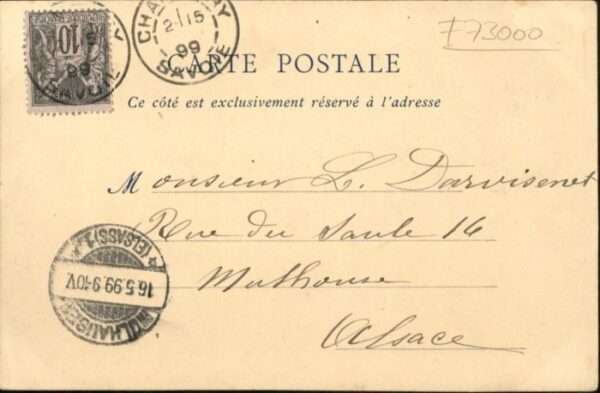 F73000
10
SAVOIE
2-/15
99
SAVOIE
CARTE POSTALE
Ce côté est exclusivement réservé à l'adresse
Monsieur L. Darvisenet
Rue du Saule 16
Mulhouse
Alsace
(ELSASS) 1
16.5.99.9-10V.
MÜLHAUSEN